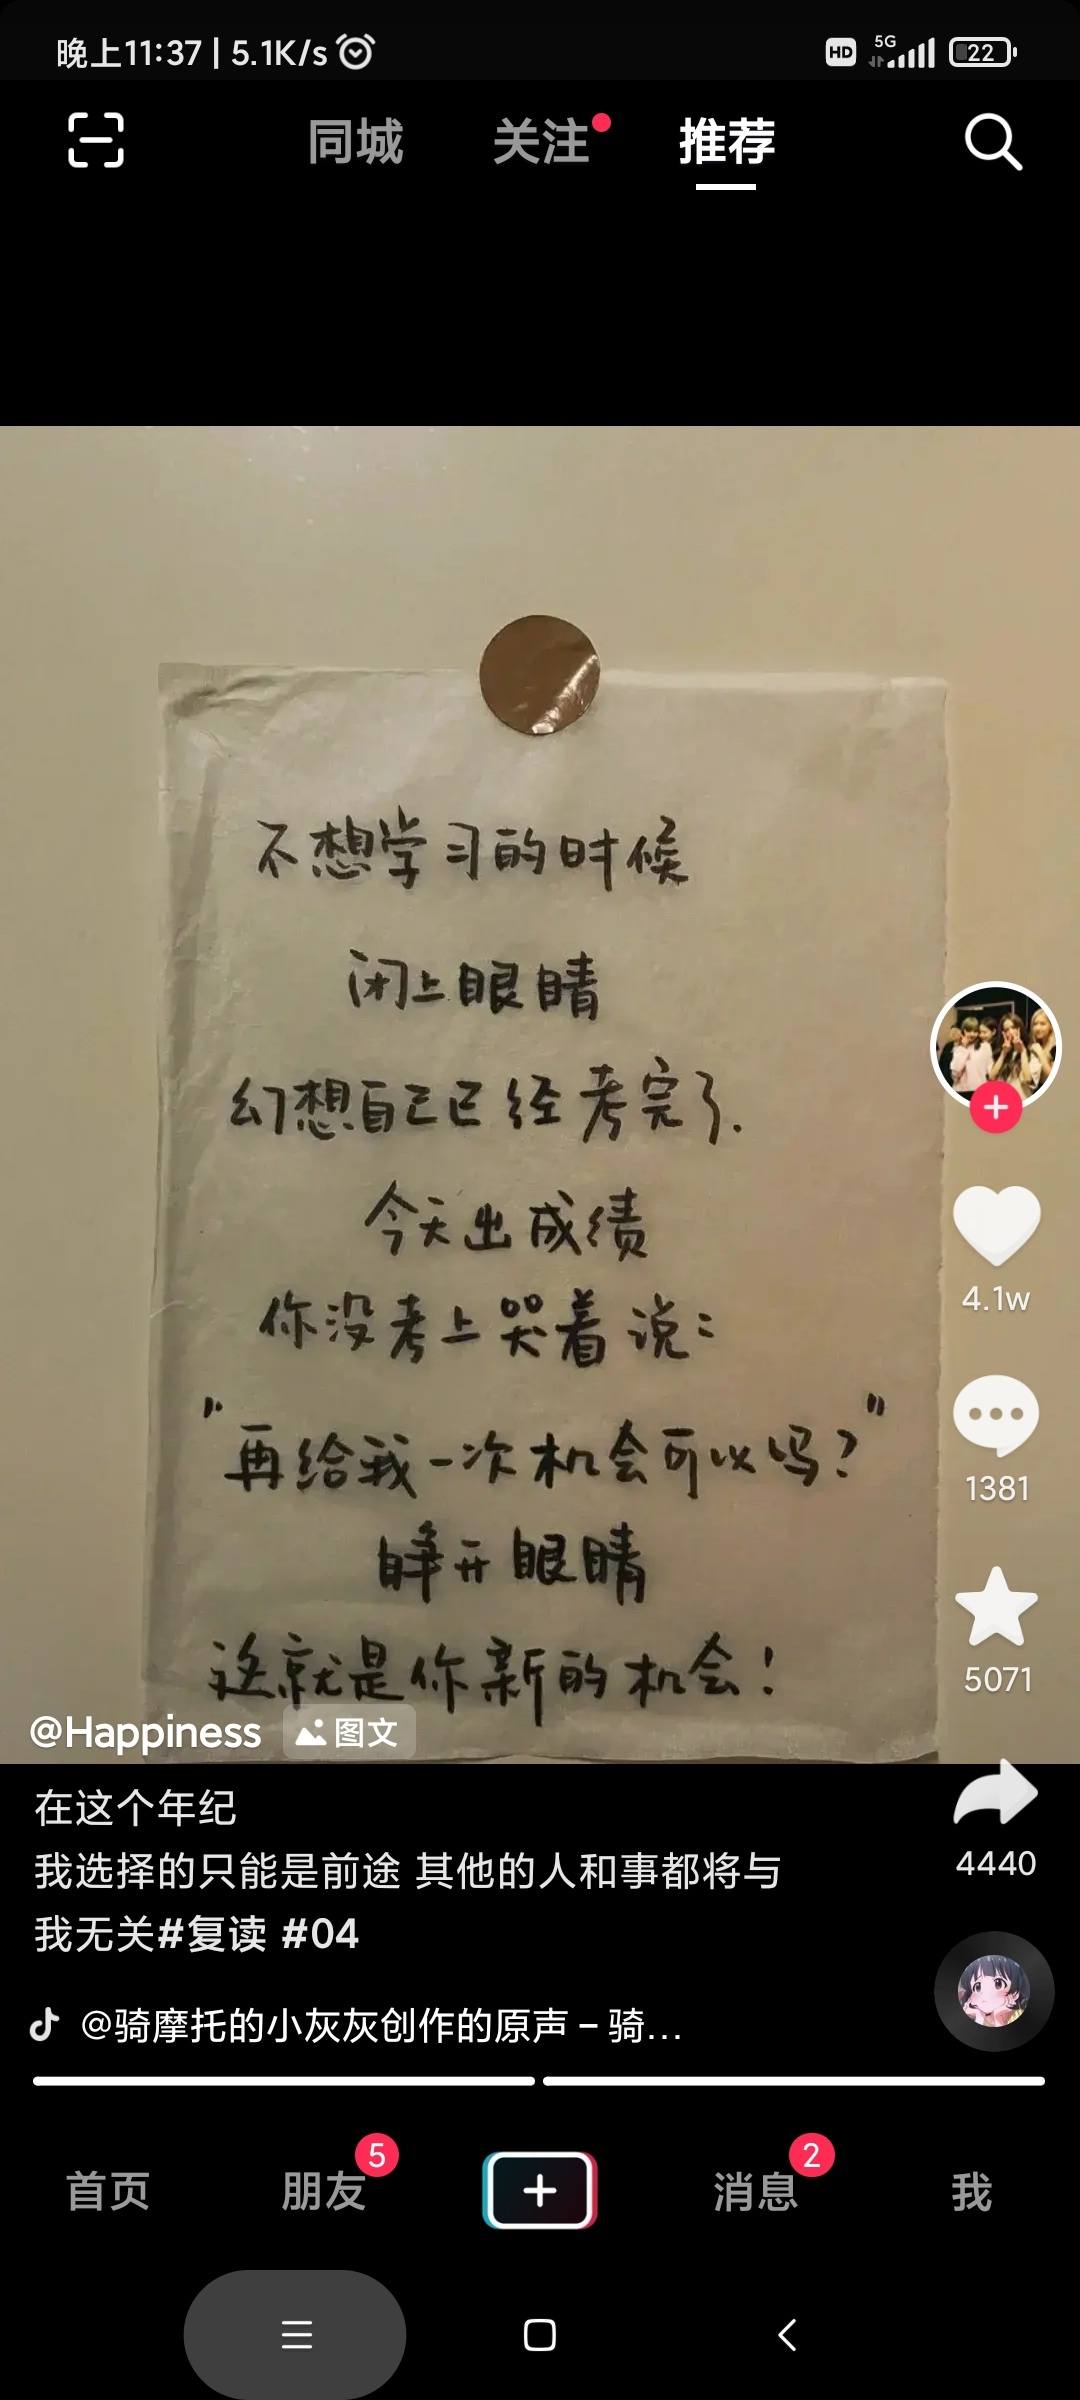 晚上11:37 | 5.1K/s
HD 5G 22
同城 关注 推荐
不想学习的时候
闭上眼睛
幻想自己已经考完了.
今天出成绩
你没考上哭着说:
"再给我一次机会可以吗?"
睁开眼睛
这就是你新的机会!
4.1w
1381
5071
4440
@Happiness 图文
在这个年纪
我选择的只能是前途 其他的人和事都将与
我无关#复读 #04
@骑摩托的小灰灰创作的原声 – 骑...
首页 朋友 5 消息 2 我